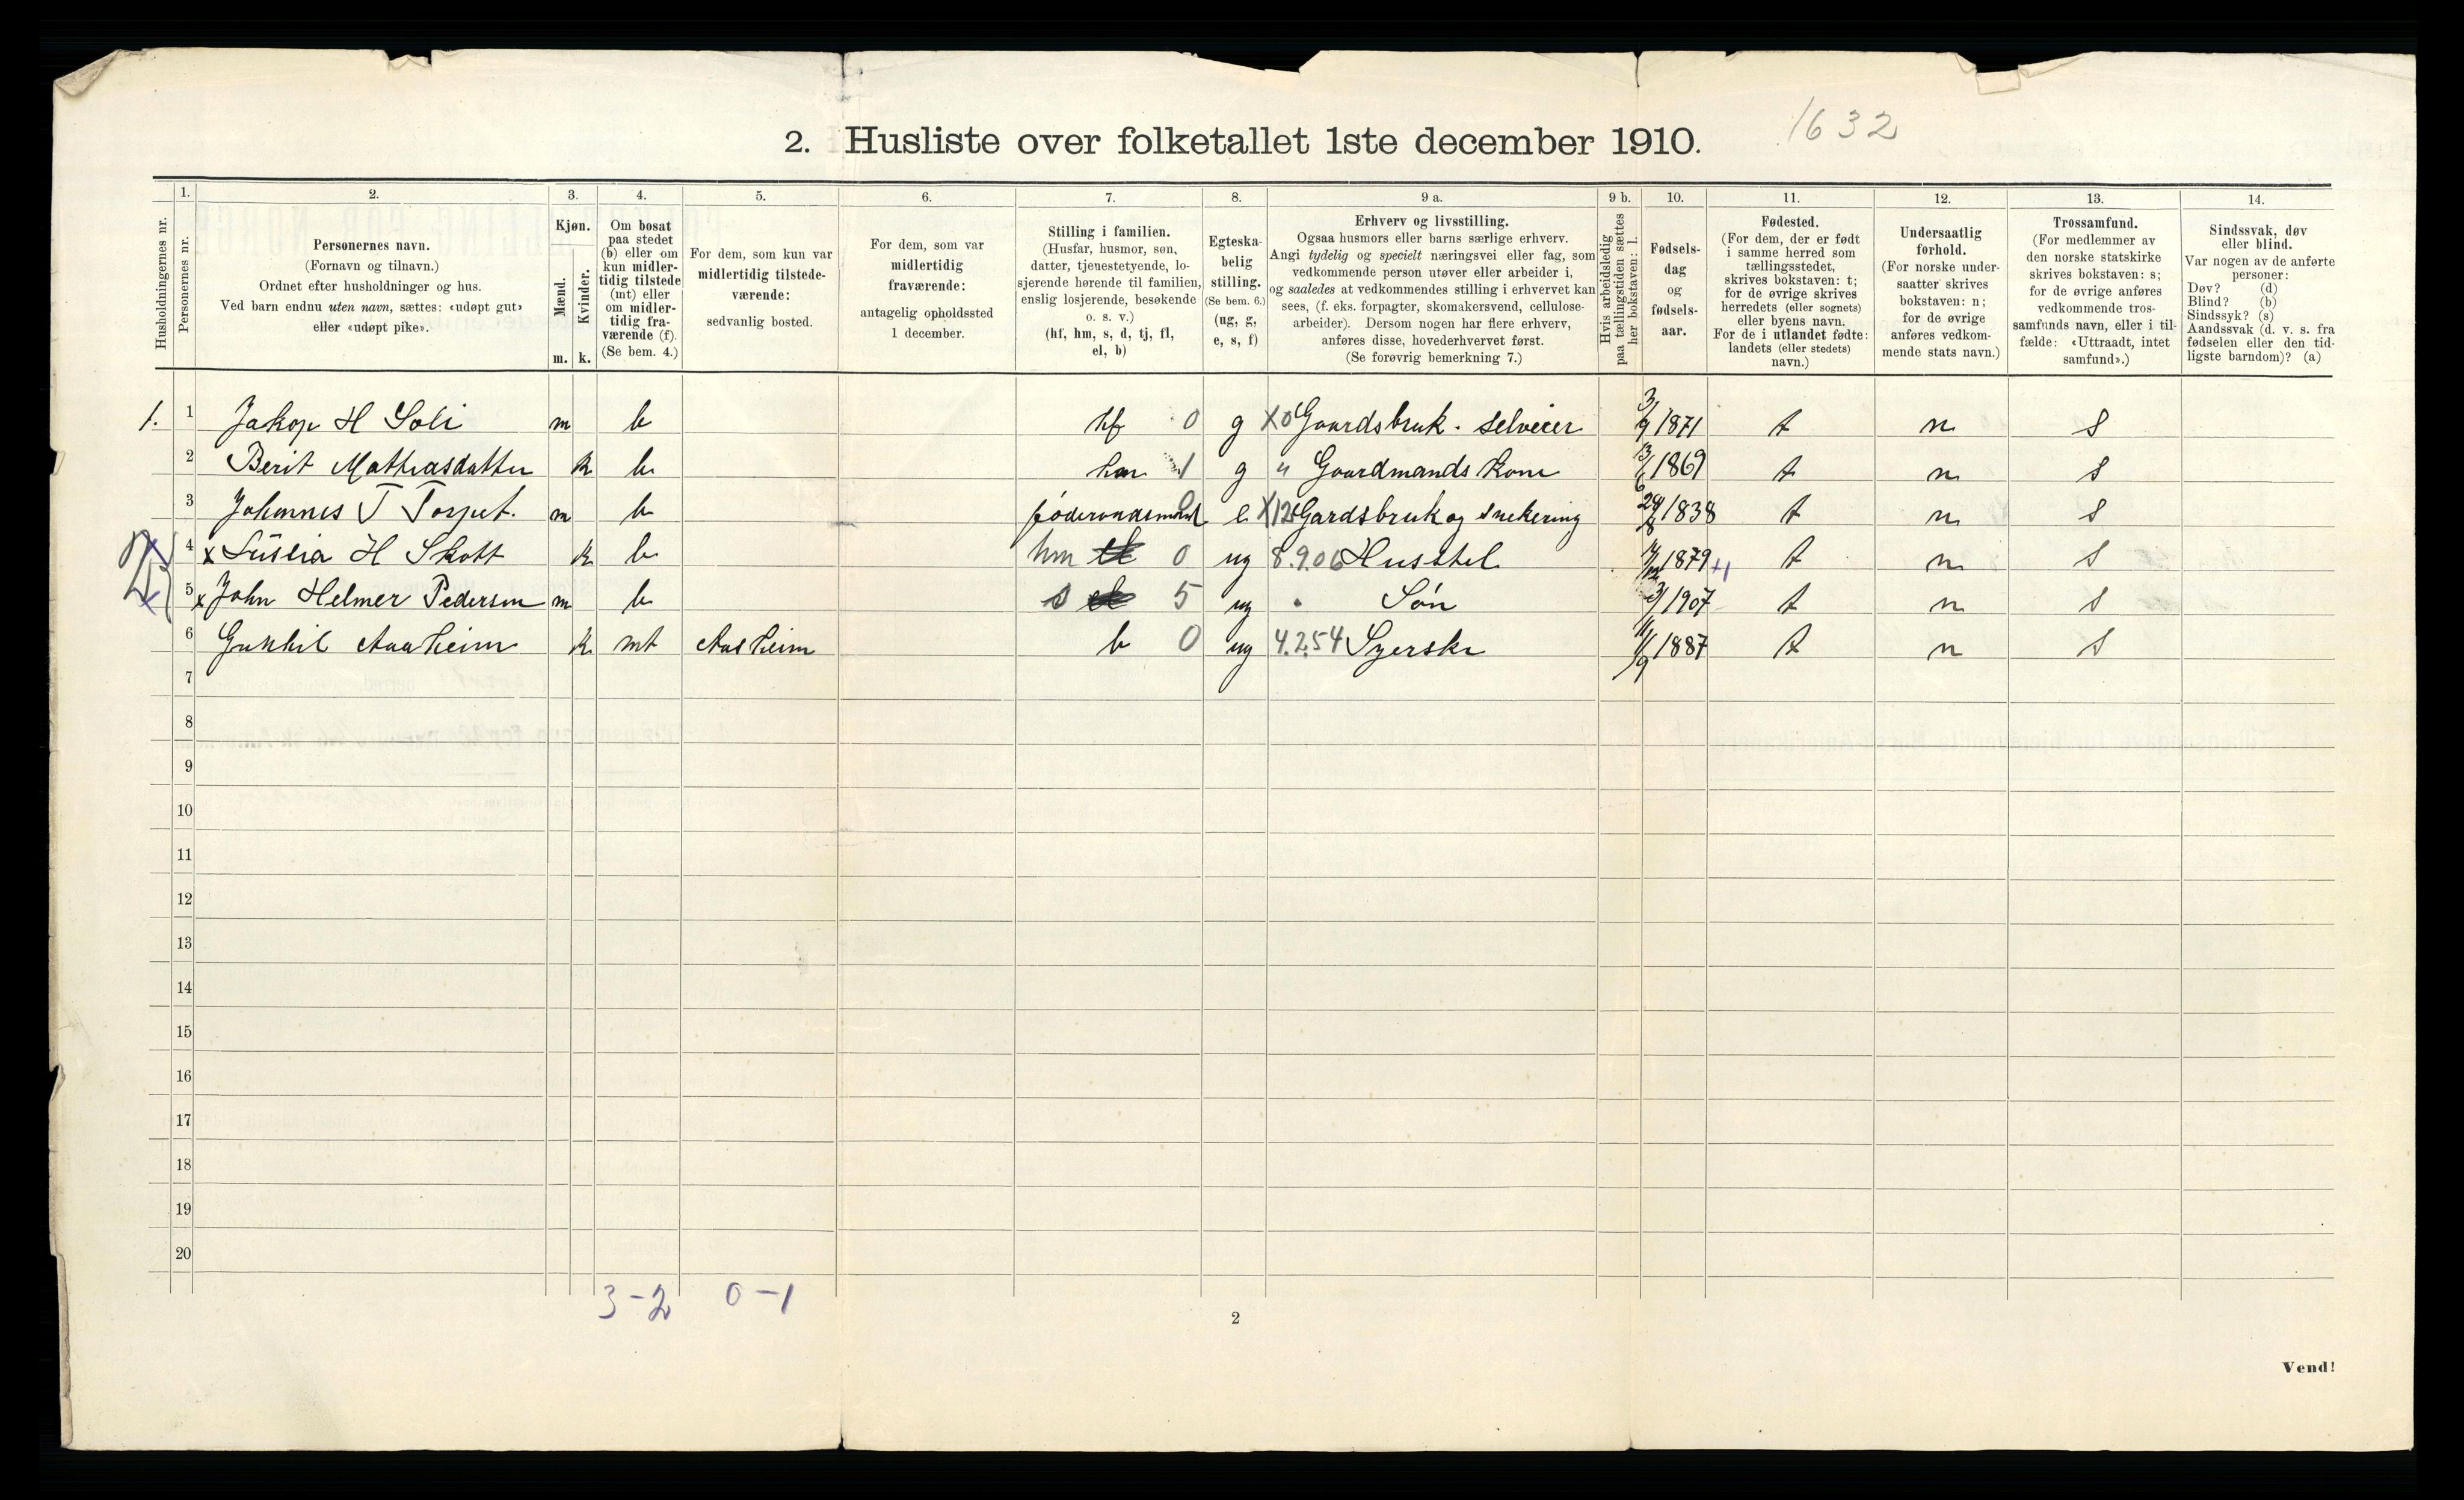 1632
2. Husliste over folketallet 1ste december 1910.
Husholdningernes nr.
1.
Personernes nr.
2.
Personernes navn.
(Fornavn og tilnavn.)
Ordnet efter husholdninger og hus.
Ved barn endnu uten navn, sættes: «udøpt gut»
eller «udøpt pike».
3.
Kjøn.
Mænd.
Kvinder.
m. k.
4.
Om bosat
paa stedet
(b) eller om
kun midler-
tidig tilstede
(mt) eller
om midler-
tidig fra-
værende (f).
(Se bem. 4.)
5.
For dem, som kun var
midlertidig tilstede-
værende:
sedvanlig bosted.
6.
For dem, som var
midlertidig
fraværende:
antagelig opholdssted
1 december.
7.
Stilling i familien.
(Husfar, husmor, søn,
datter, tjenestetyende, lo-
sjerende hørende til familien,
enslig losjerende, besøkende
o. s. v.)
(hf, hm, s, d, tj, fl,
el, b)
8.
Egteska-
belig
stilling.
(Se bem. 6.)
(ug, g,
e, s, f)
9 a.
Erhverv og livsstilling.
Ogsaa husmors eller barns særlige erhverv.
Angi tydelig og specielt næringsvei eller fag, som
vedkommende person utøver eller arbeider i,
og saaledes at vedkommendes stilling i erhvervet kan
sees, (f. eks. forpagter, skomakersvend, cellulose-
arbeider). Dersom nogen har flere erhverv,
anføres disse, hovederhvervet først.
(Se forøvrig bemerkning 7.)
9 b.
Hvis arbeidsledig
paa tællingstiden sættes
her bokstaven: l.
10.
Fødsels-
dag
og
fødsels-
aar.
11.
Fødested.
(For dem, der er født
i samme herred som
tællingsstedet,
skrives bokstaven: t;
for de øvrige skrives
herredets (eller sognets)
eller byens navn.
For de i utlandet fødte:
landets (eller stedets)
navn.)
12.
Undersaatlig
forhold.
(For norske under-
saatter skrives
bokstaven: n;
for de øvrige
anføres vedkom-
mende stats navn.)
13.
Trossamfund.
(For medlemmer av
den norske statskirke
skrives bokstaven: s;
for de øvrige anføres
vedkommende tros-
samfunds navn, eller i til-
fælde: «Uttraadt, intet
samfund».)
14.
Sindssvak, døv
eller blind.
Var nogen av de anførte
personer:
Døv? (d)
Blind? (b)
Sindssyk? (s)
Aandssvak (d. v. s. fra
fødselen eller den tid-
ligste barndom)? (a)
1. 1 Jakop H Soli m b hf 0 g X0 Gaardsbruk. selveier 3/9 1871 t n s
2 Berit Mathiasdatter k b hm 1 g " Gaardmands kone 13/6 1869 t n s
3 Johannes T Torput. m b føderaadsmand 0 e X12 Gardsbruk og snekering 24/8 1838 t n s
4 x H Skott k b hm 0 ug 8.9.06 Husstel 1879 +1 t n s
5 x John Helmer Pedersen m b s 5 ug Søn 1907 t n s
6 Gunhil Aaaheim k mt Aasheim b 0 ug 4.2.54 Syerske 11/9 1887 t n s
7
8
9
10
11
12
13
14
15
16
17
18
19
20
3-2 0-1
2
Vend!